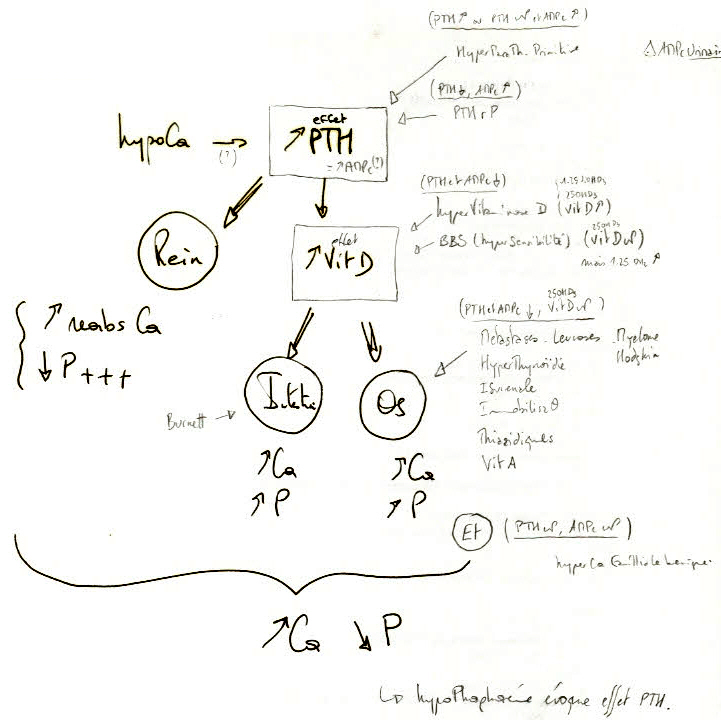 (PTH↑ ou PTH N et AMPc ↑)
HyperParath. Primitive
Δ AMPc Urinaire
(PTH↓, AMPc ↑)
PTHrP
hypoCa → (?)
effet
↑ PTH
= ↑ AMPc (?)
(PTH et AMPc ↓)
1.25 2OHD3
25OHD3
hyperVitaminose D (vitD↑)
25OHD3
BBS (hypersensibilité) (vitD N)
mais 1.25 OH2 ↑
Rein
effet
↑ Vit D
↑ reabs Ca
↓ P +++
25OHD3
(PTH et AMPc ↓, VitD N)
Métastases. Leucoses. Myelome
Hodgkin
HyperThyroïdie
Isurénale
Immobilis θ
Thiazidiques
Vit A
Burnett →
Intestin
Os
↑ Ca
↑ P
↑ Ca
↑ P
Et (PTH N, AMPc N)
hyperCa familiale benigne.
↑ Ca ↓ P
↳ hypoPhosphorémie évoque effet PTH.